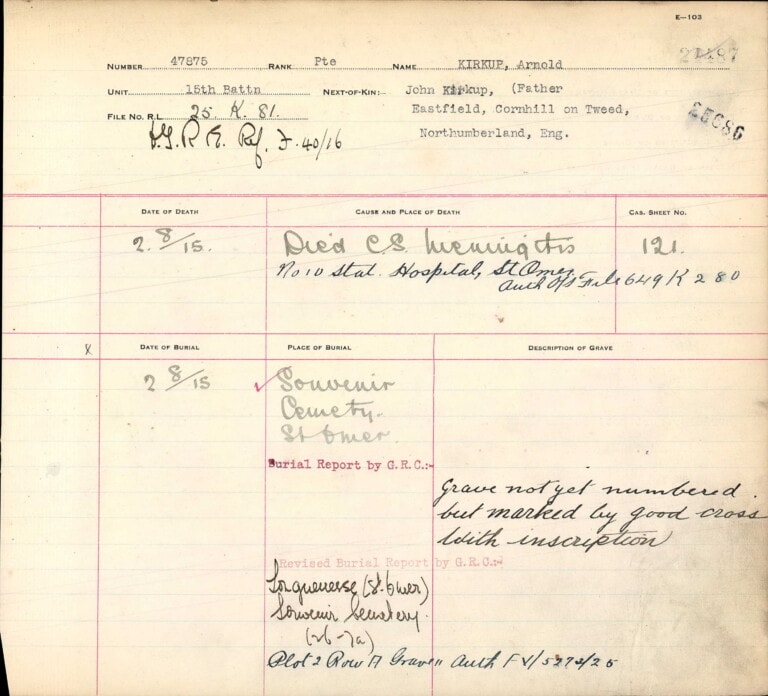 E—103
NUMBER 47875 RANK Pte NAME KIRKUP, Arnold
UNIT 15th Battn NEXT-OF-KIN:— John Kirkup, (Father
FILE NO. R.L. 25. K. 81. Eastfield, Cornhill on Tweed,
Northumberland, Eng.
25686
Ref. F. 40/16
DATE OF DEATH CAUSE AND PLACE OF DEATH CAS. SHEET NO.
2. 8/15. Died C.S. Meningitis 121.
No 10 Stat. Hospital, St Omer
Auth File 649 K 280
x DATE OF BURIAL PLACE OF BURIAL DESCRIPTION OF GRAVE
2 8/15 Souvenir
Cemety.
St Omer.
Burial Report by G.R.C:-
Grave not yet numbered
but marked by good cross
With inscription
Revised Burial Report by G.R.C:-
Longuenesse (St. Omer)
Souvenir Cemetery.
Plot 2 Row A Grave 11 Auth